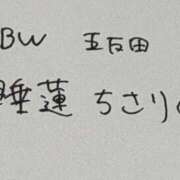 BW 五反田
睡蓮 ちさり